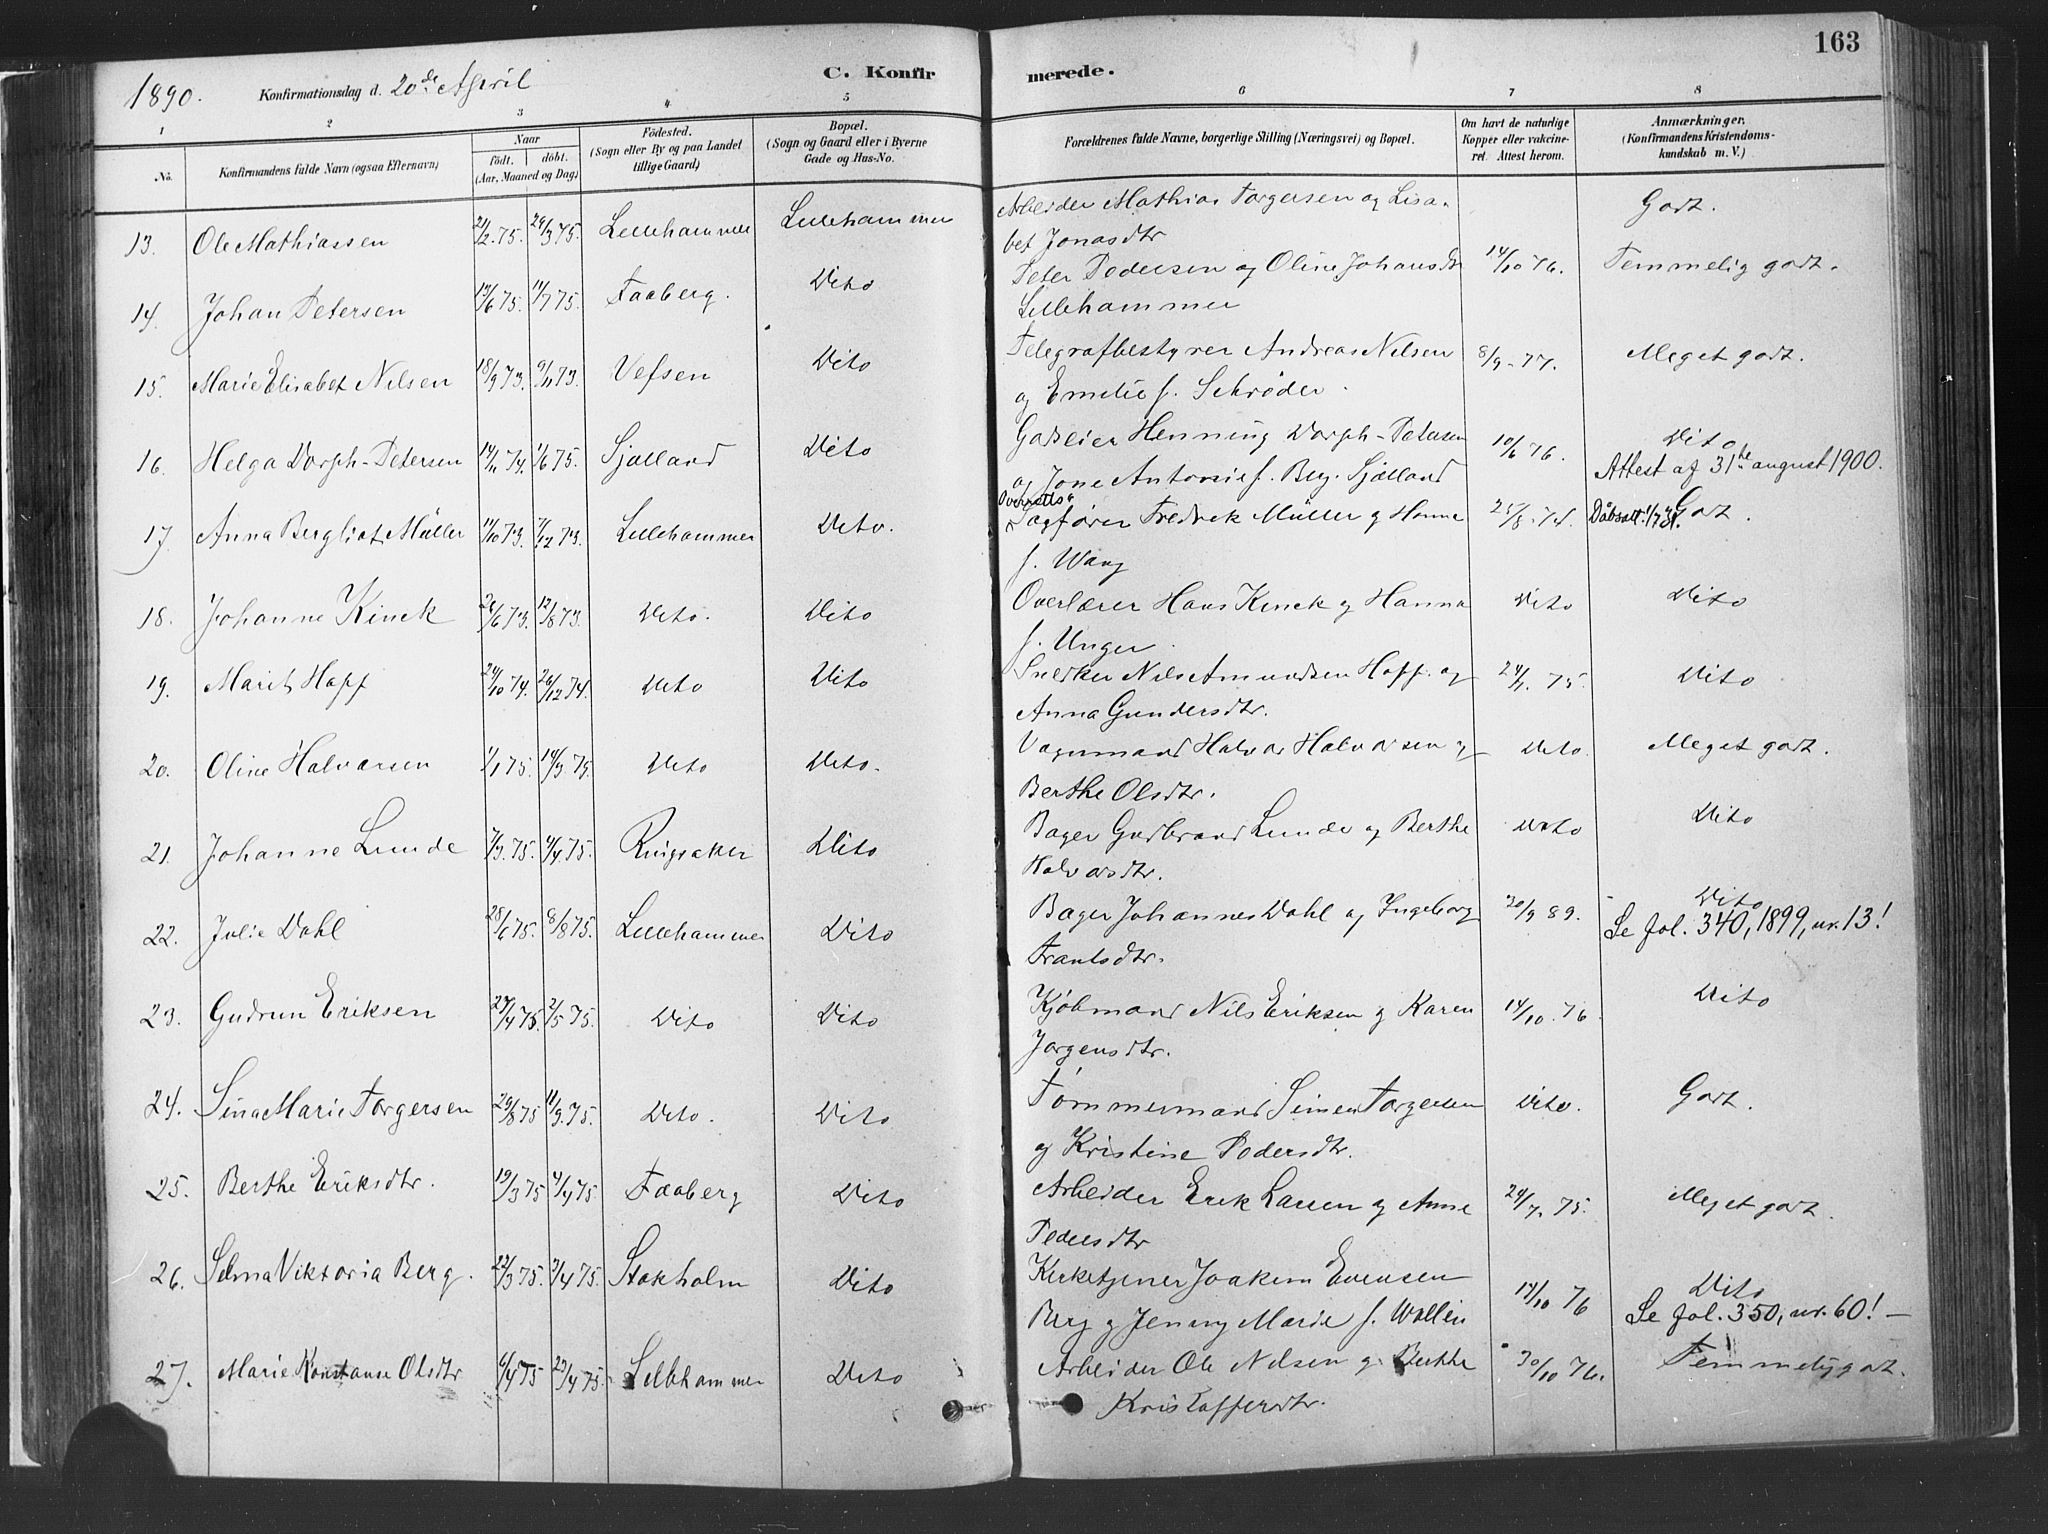 163
1890. Konfirmationsdag d. 20de April C. Konfirmerede.
1 2 3 4 5 6 7 8
No. Konfirmandens fulde Navn (ogsaa Efternavn) Naar født. døbt. (Aar, Maaned og Dag) Fødested. (Sogn eller By og paa Landet tillige Gaard) Bopæl. (Sogn og Gaard eller i Byerne Gade og Hus-No. Forældrenes fulde Navne, borgerlige Stilling (Næringsvei) og Bopæl. Om havt de naturlige Kopper eller vakcineret. Attest herom. Anmærkninger. (Konfirmandens Kristendomskundskab m. V.)
13. Ole Mathiassen 21/2.75. 29/3 75. Lillehammer Lillehammer Arbeider Mathias Torgersen og Lisa- Godt.
bet Jonasdtr
14. Johan Petersen 13/6 75. 11/7 75. Faaberg. Dito Peter Pedersen og Oline Johansdtr 14/10 76. Temmelig godt.
Lillehammer
15. Marie Elisabet Nilsen 18/9 73. 9/11 73. Vefsen Dito Telegrafbestyrer Andreas Nilsen 8/9-77. Meget godt.
og Emilie f. Schrøder.
16. Helga Dorph-Petersen 14/11 74. 1/6 75. Sjælland Dito Godseier Henning Dorph-Petersen 10/6 76. Dito
og Jone Antonie f. Berg. Sjælland Attest af 31te august 1900.
17. Anna Bergliot Müller 11/10 73. 7/12 73. Lillehammer Dito. Overretts- Sagfører Fredrik Müller og Hanna 25/8.74. Dåbsatt. Godt.
f. Wang
18. Johanne Kinck 26/6 73. 12/8 73. Dito. Dito Overlærer Hans Kinck og Hanna Dito Dito
f. Unger.
19. Marit Hoff 24/10 74. 26/12 74. Dito Dito Snedker Nils Amundsen Hoff. og 24/7. 75. Dito
Anna Gundersdtr.
20. Oline Halvorsen 1/1 75. 14/3.75. Dito Dito. Vognmand Halvor Halvorsen og Dito. Meget godt.
Berthe Olsdtr.
21. Johanne Lunde 7/3.75. 4/4.75. Ringsaker Dito Bager Gudbrand Lunde og Berthe Dito Dito
Halvorsdtr.
22. Julie Dahl 28/6 75. 8/8 75. Lillehammer Dito Bager Johannes Dahl og Ingeborg 30/9 89. Dito
Frantsdtr. Se fol. 340, 1899, nr. 13!
23. Gudrun Eriksen 27/4 75. 2/5 75. Dito Dito Kjøbmand Nils Eriksen og Karen 14/10. 76. Dito
Jørgensdtr.
24. Sina Marie Torgersen 29/8 75 11/9.75. Dito. Dito Tømmermand Simen Torgersen Dito. Godt.
og Kristine Pedersdtr.
25. Berthe Eriksdtr. 19/3 75 4/4 75 Faaberg Dito Arbeider Erik Larsen og Anne 24/7. 75. Meget godt.
Pedersdtr
26. Selma Viktoria Berg. 22/3 75. 3/4 75. Stokholm Dito Kirketjener Joakim Evensen 14/10 76 Dito
Berg og Jenny Marie f. Wallin Se fol. 350, nr. 60! —
27. Marie Konstanse Olsdtr 6/4 75 23/4 75. Lillehammer Dito Arbeider Ole Nilsen og Berthe 30/10 76. Temmelig godt.
Kristoffersdtr.